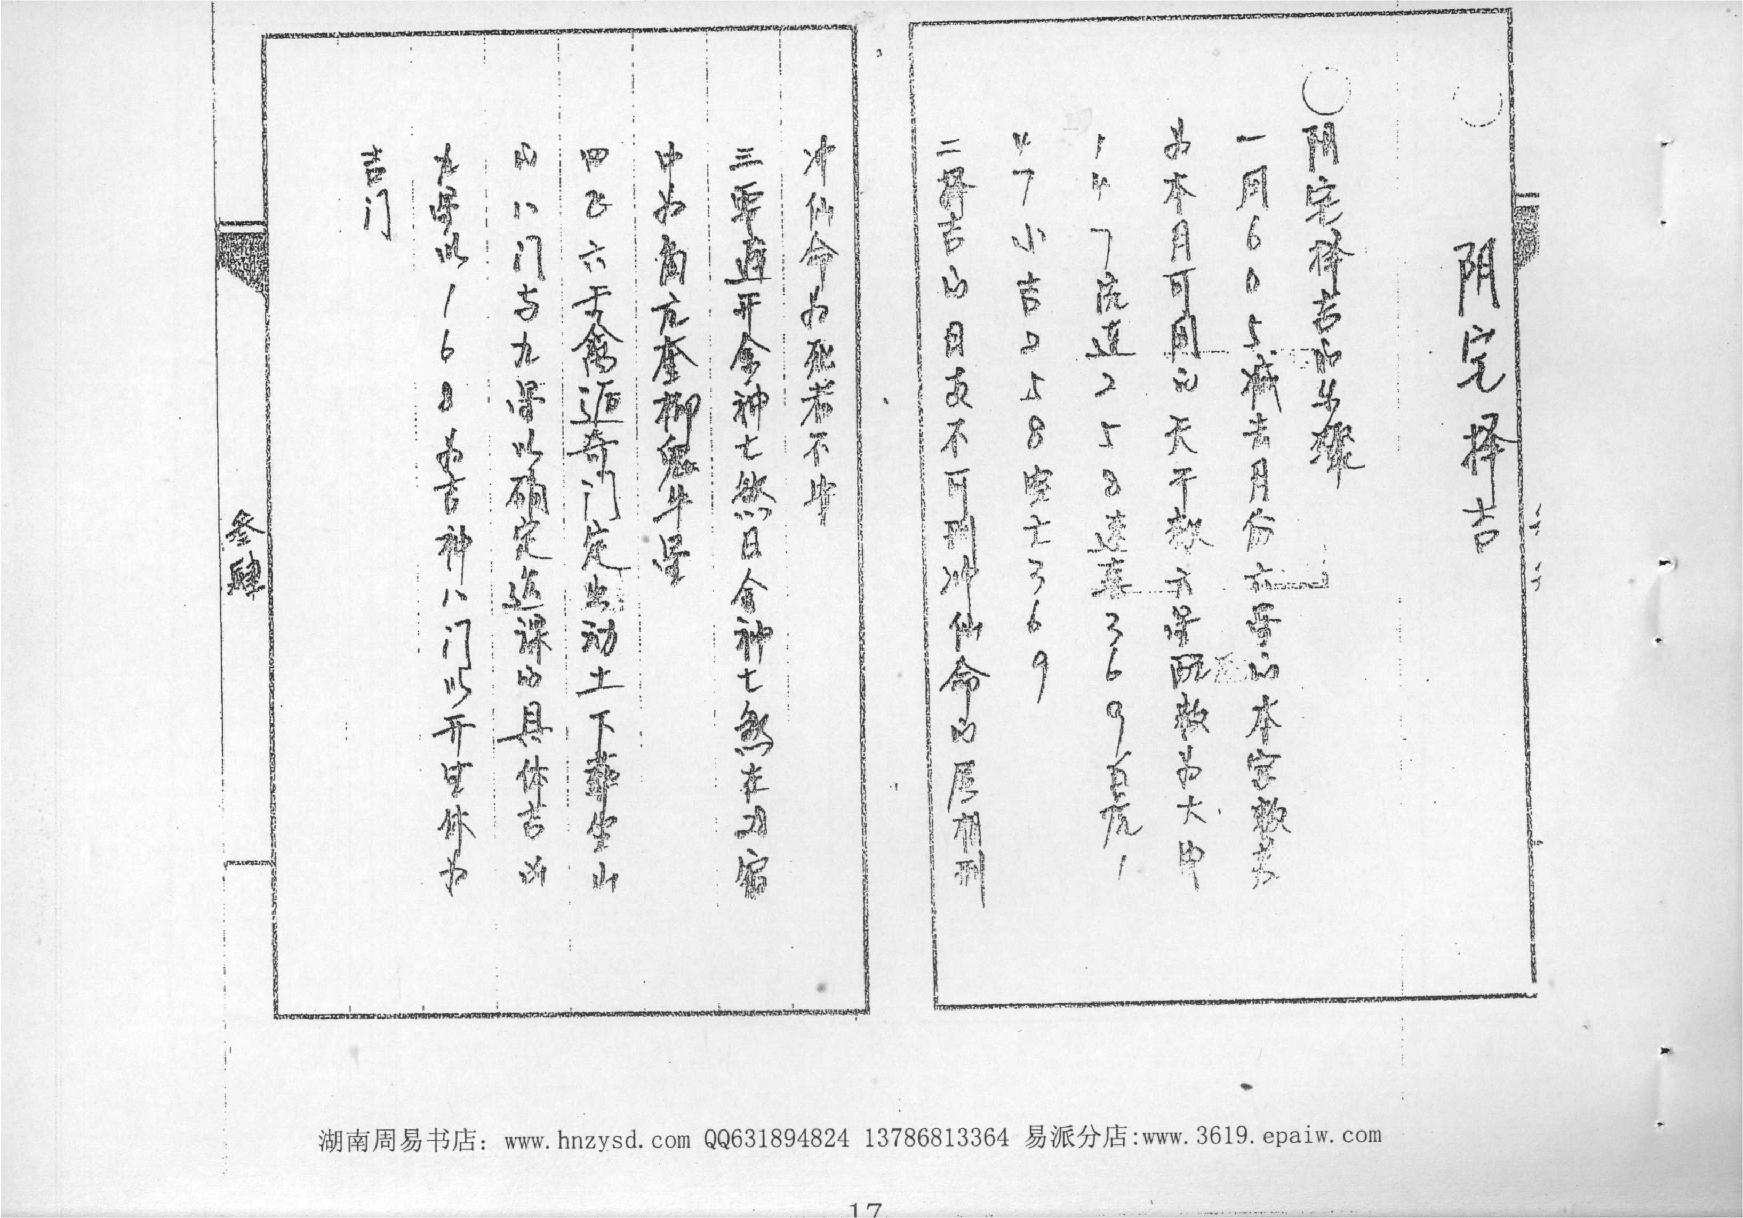 阴宅择吉
阴宅择吉的步骤
一用6005减去月份六星的本宫数差
为本月可用的天干数六星配数为大安
147流连258速喜369白虎1
47小吉258空亡369
二择吉的日支不可刑冲仙命的属相刑
冲仙命为死者不安
三要避开金神七煞日金神七煞在28宿
中为角亢奎娄鬼牛星
四飞六壬禽遁奇门定出动土下葬坐山
的八门与九星以确定选课的具体吉凶
九星以168为吉神八门以开生休为
吉门
叁肆
湖南周易书店：www.hnzysd.com QQ631894824 13786813364 易派分店:www.3619.epaiw.com
17